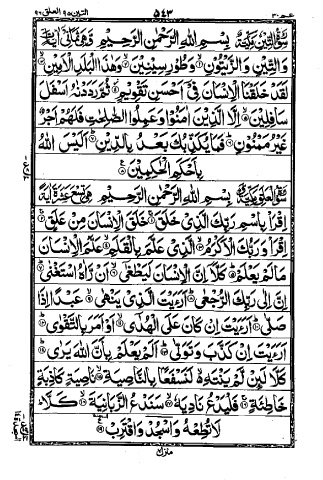 التين ٩٥ العلق ٩٦ ٥٤٣ عم ٣٠
سورة التين مكية بسم الله الرحمن الرحيم وهي ثماني آية
والتين والزيتون وطور سينين وهذا البلد الامين
لقد خلقنا الانسان في احسن تقويم ثم رددنه اسفل
سافلين الا الذين امنوا وعملوا الصلحت فلهم اجر
غير ممنون فما يكذبك بعد بالدين اليس الله
باحكم الحكمين
سورة العلق مكية بسم الله الرحمن الرحيم وهي تسع عشرة آية
اقرأ باسم ربك الذي خلق خلق الانسان من علق
اقرأ وربك الاكرم الذي علم بالقلم علم الانسان
ما لم يعلم كلا ان الانسان ليطغى ان راه استغنى
ان الى ربك الرجعى ارءيت الذي ينهى عبدا اذا
صلى ارءيت ان كان على الهدى او امر بالتقوى
ارءيت ان كذب وتولى الم يعلم بان الله يرى
كلا لئن لم ينته لنسفعا بالناصية ناصية كاذبة
خاطئة فليدع ناديه سندع الزبانية كلا
لا تطعه واسجد واقترب
منزل